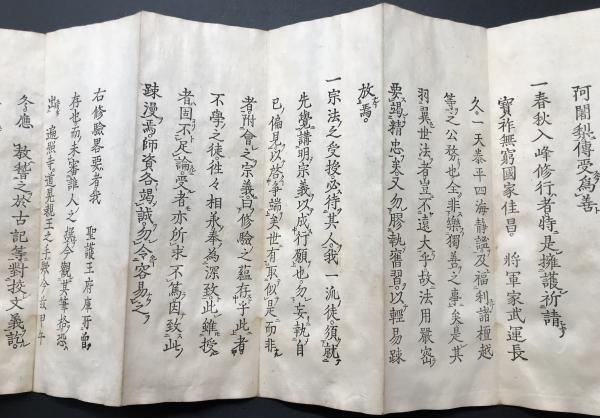 阿闍梨傳受爲善
一春秋入峰修行者特是擁護祈請
寶祚無窮國家佳昌 將軍家武運長
久一天泰平四海靜謐及福利諸檀越
等之公務也全非樂獨善之事矣是其
羽翼世法者豈不遠大乎故法用嚴密
要竭精忠矣又勿膠執舊習以輕易踈
放焉
一宗法之受授必待其人我一流徒須就
先覺講明宗義以成行願也勿妄執自
己偏見以啓爭端矣世有取似是而非
者附會之宗義曰修驗之蘊存乎此者
不學之徒徃々相承奉爲深致此雖授
者固不足論受者亦所求不篤因致此
踈漫焉師資各竭誠勿令容易之
右修驗畧要者我 聖護王府庫所曾
存也而未審誰人之撰今觀其筆格恐
出遍照寺道晃親王之手歟今茲甲午
冬應 教諬之於古記等對挍文義訛